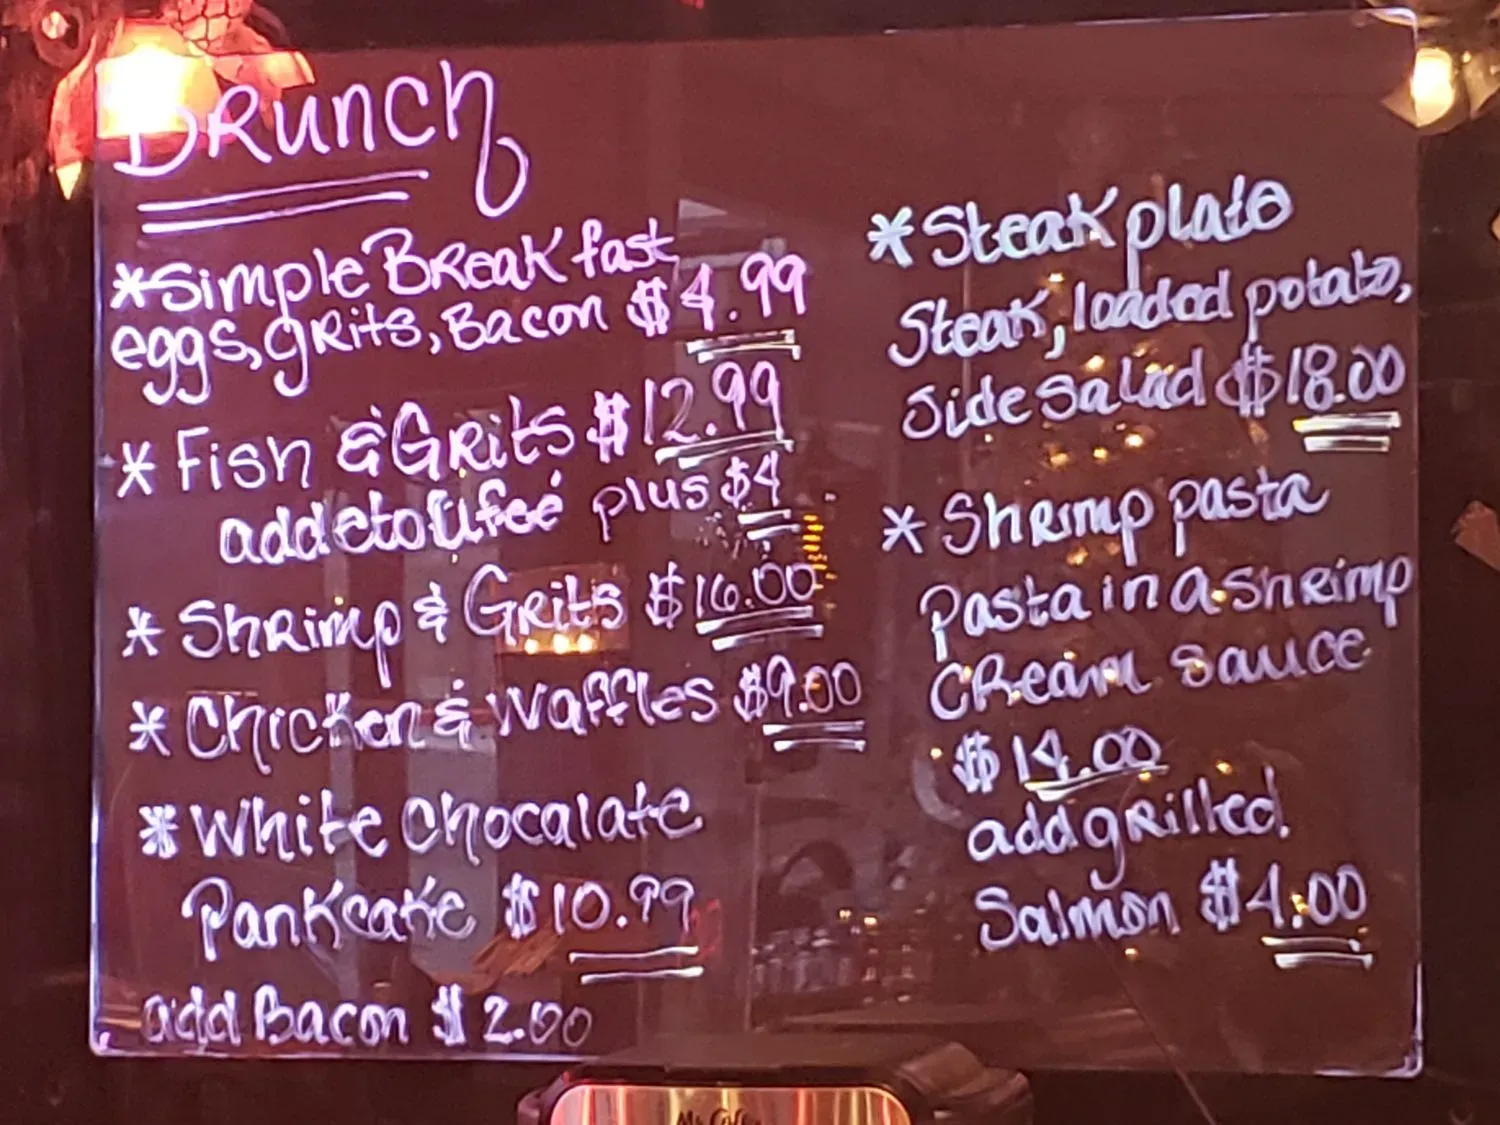 Brunch
*Simple Breakfast
eggs, grits, Bacon $4.99
* Fish & Grits $12.99
add etouffee plus $4
* Shrimp & Grits $16.00
* Chicken & Waffles $9.00
* White Chocalate
Pankcake $10.99
add Bacon $2.00
* Steak plate
Steak, loaded potato,
Side Salad $18.00
* Shrimp pasta
Pasta in a shrimp
cream sauce
$14.00
add grilled
Salmon $4.00